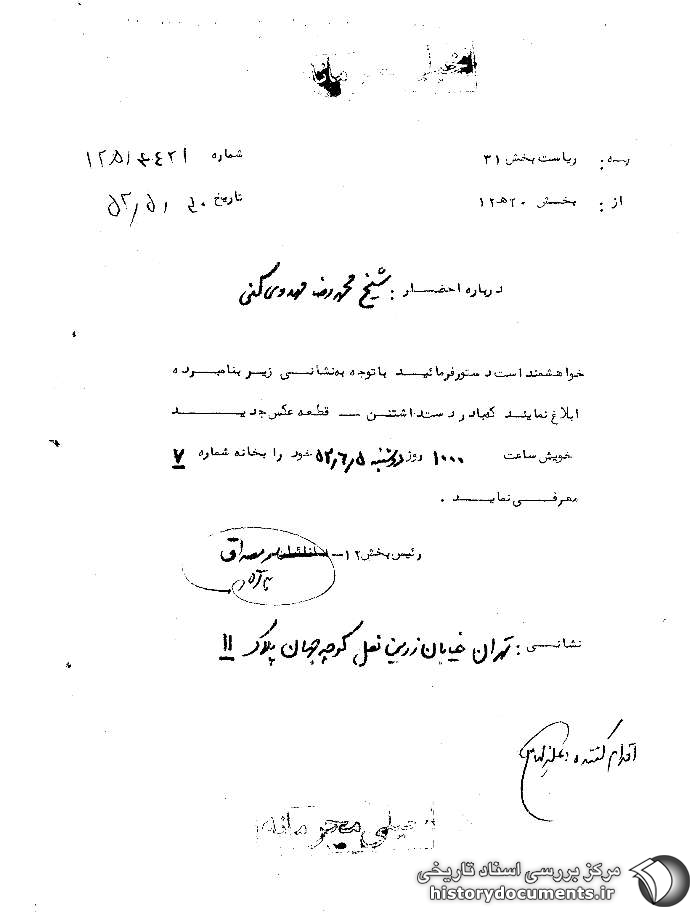 خیلی محرمانه
به: ریاست بخش ۳۱
شماره
از: بخش ۱۲۵۲۰
تاریخ
درباره احضار: شیخ محمدرضا مهدوی کنی
خواهشمند است دستور فرمائید با توجه به نشانی زیر بنامبرده
ابلاغ نمایند که با در دست داشتن — قطعه عکس جدید
خویش ساعت ۱۰۰۰ روز دوشنبه ۵۲٫۶٫۵ خود را بخانه شماره ۷
معرفی نماید.
رئیس بخش ۱۲-
نشانی: تهران خیابان زرین نعل کوچه جهان پلاک ۱۱
اقدام کننده:
خیلی محرمانه
مرکز بررسی اسناد تاریخی
historydocuments.ir